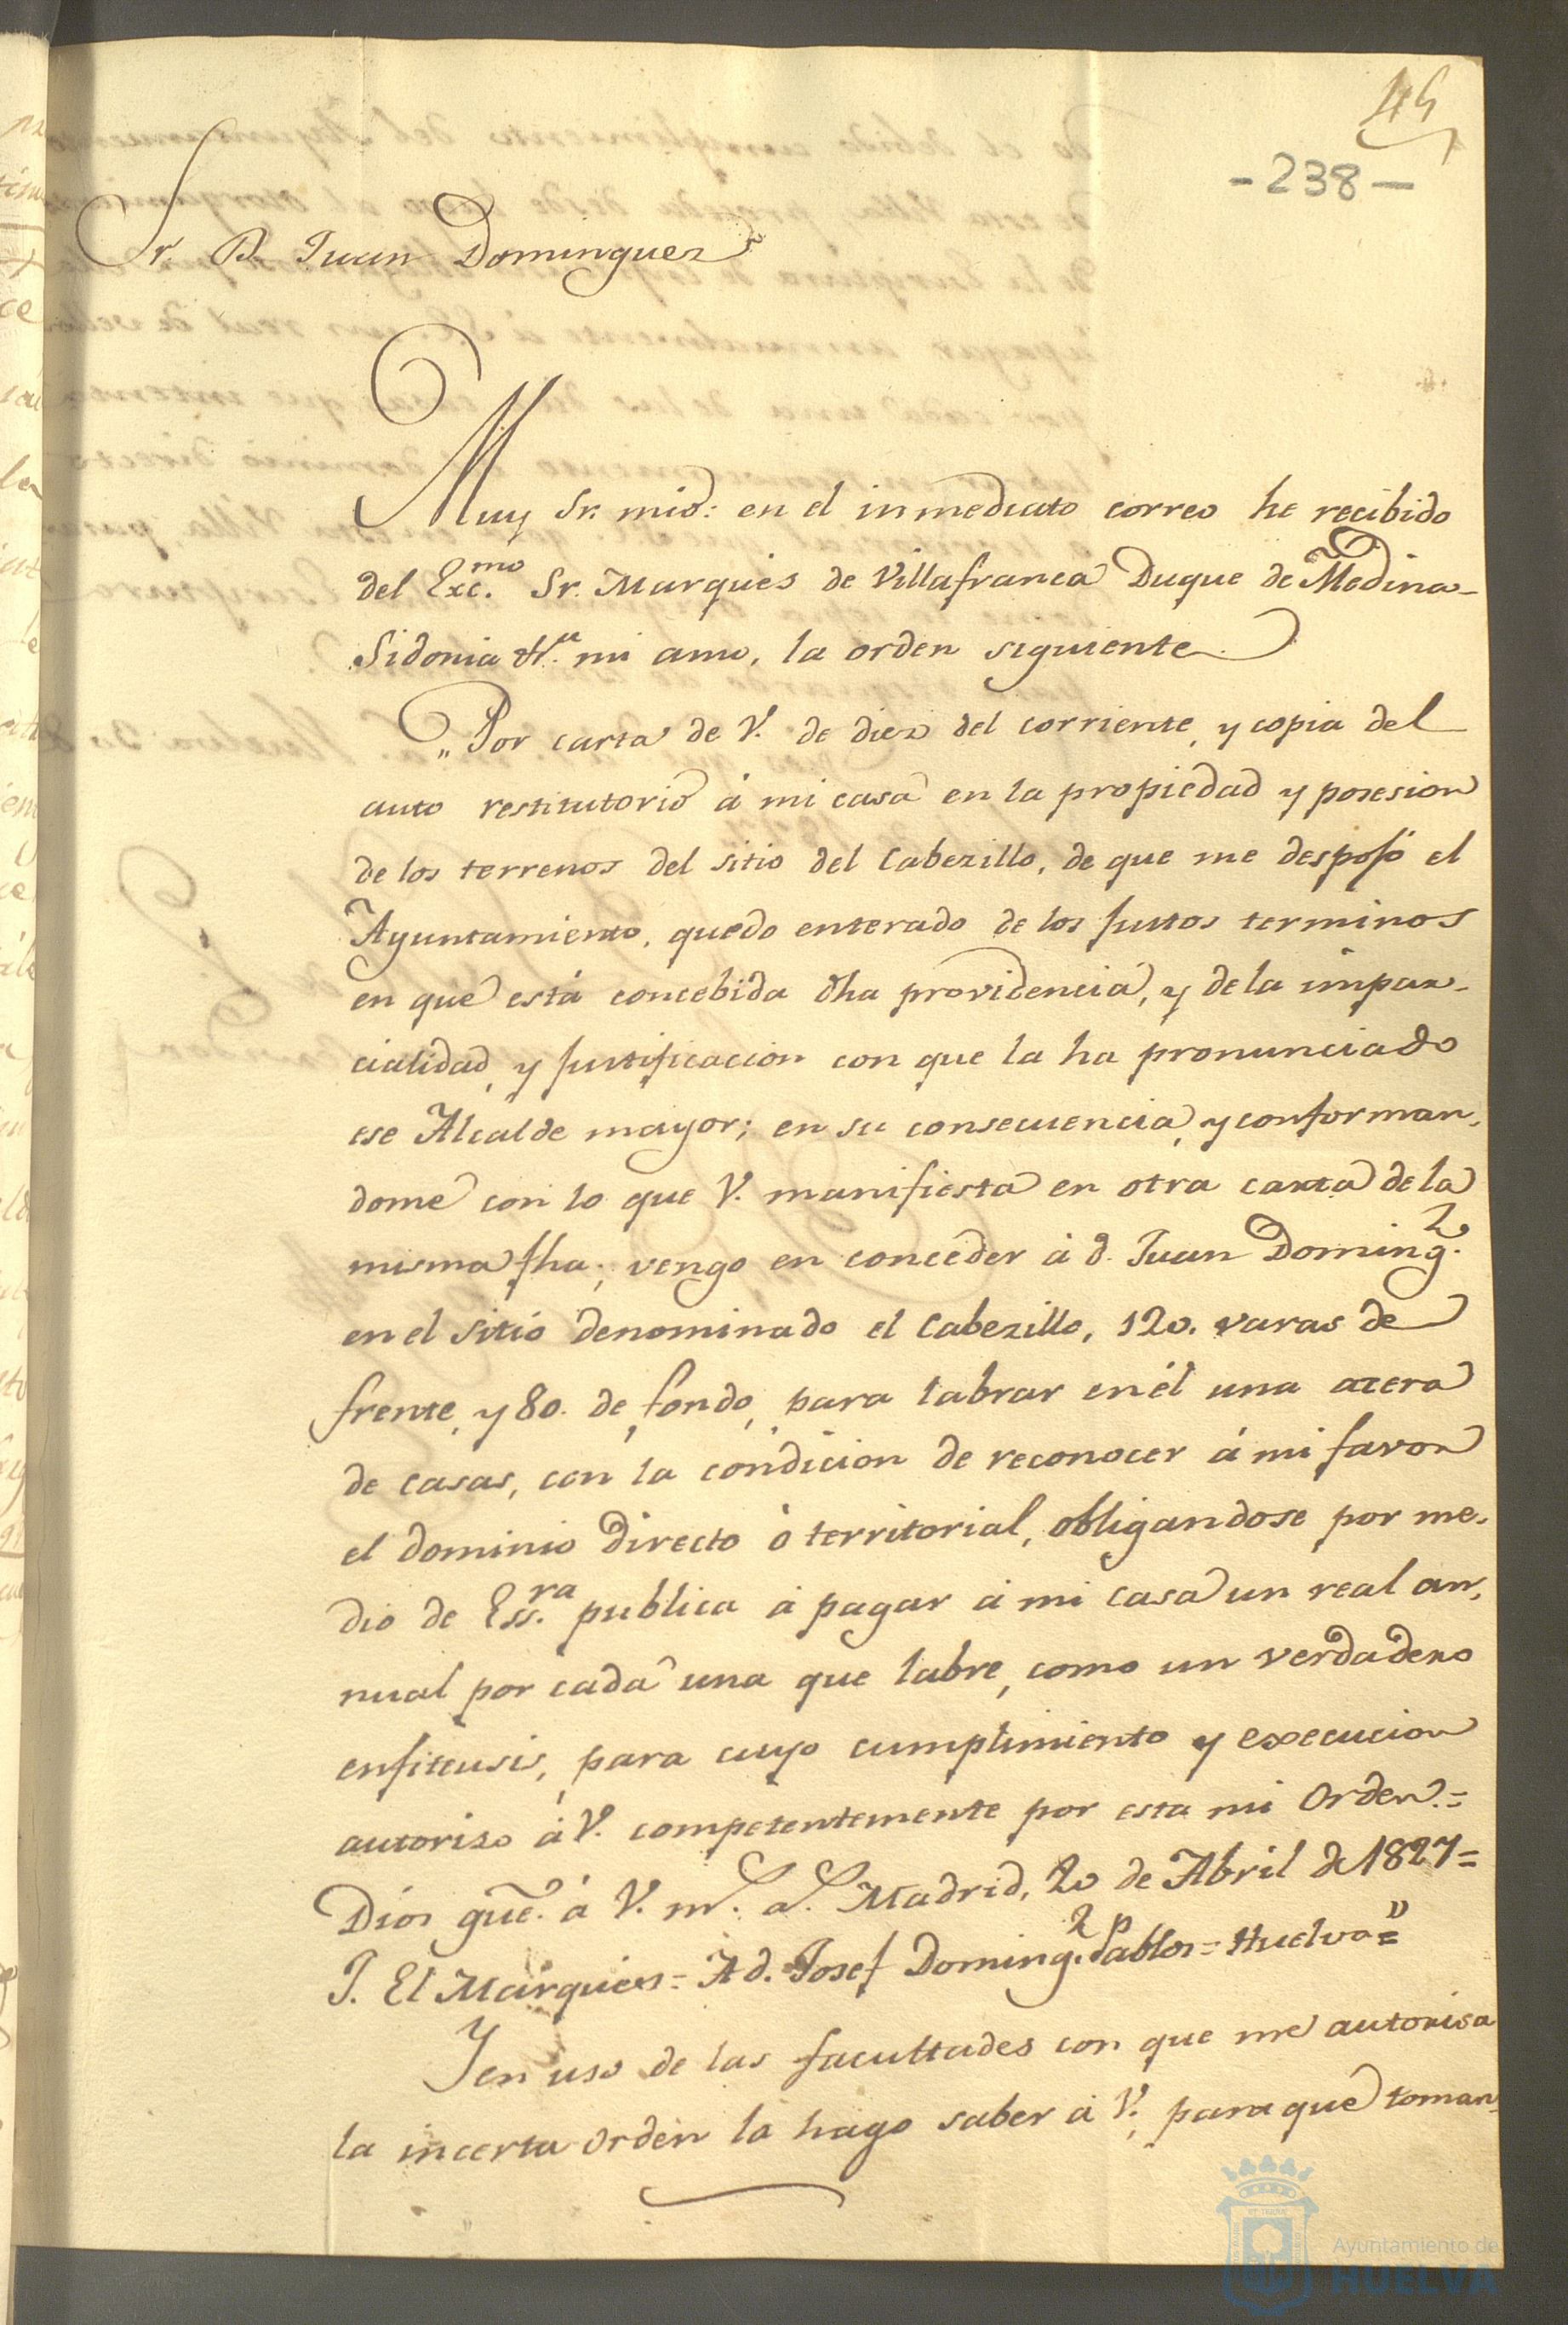 45
-238-
Sr. D. Juan Dominguez
Muy Sr. mio: en el inmediato correo he recibido
del Exc.mo Sr. Marques de Villafranca Duque de Medina-
Sidonia &.a mi amo, la orden siguiente.
„Por carta de V. de diez del corriente, y copia del
auto restitutorio á mi casa en la propiedad y posesion
de los terrenos del sitio del Cabezillo, de que me despojó el
Ayuntamiento, quedo enterado de los justos terminos
en que está concebida dha providencia, y de la impar-
cialidad, y justificacion con que la ha pronunciado
ese Alcalde mayor; en su consecuencia, y conforman-
dome con lo que V. manifiesta en otra carta de la
misma fha; vengo en conceder á d. Juan Doming.z
en el sitio denominado el Cabezillo, 120. varas de
frente, y 80. de fondo, para labrar en él una acera
de casas, con la condicion de reconocer á mi favor
el dominio directo ó territorial, obligandose por me-
dio de Ess.ra publica á pagar á mi casa un real an-
nual por cada una que labre, como un verdadero
enfiteusis, para cuyo cumplimiento y execucion
autorizo á V. competentemente por esta mi Orden.=
Dios gue. á V. m.s a.s Madrid, 20 de Abril de 1827=
J. El Marques= A d. Josef Doming.z Pablos= Huelva="
Y en uso de las facultades con que me autoriza
la incerta orden la hago saber á V. para que toman-
Ayuntamiento de
HUELVA